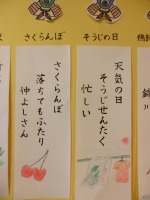 そうじの日
天気の日
そうじせんたく
忙しい
さくらんぼ
さくらんぼ
落ちてもふたり
仲よしさん